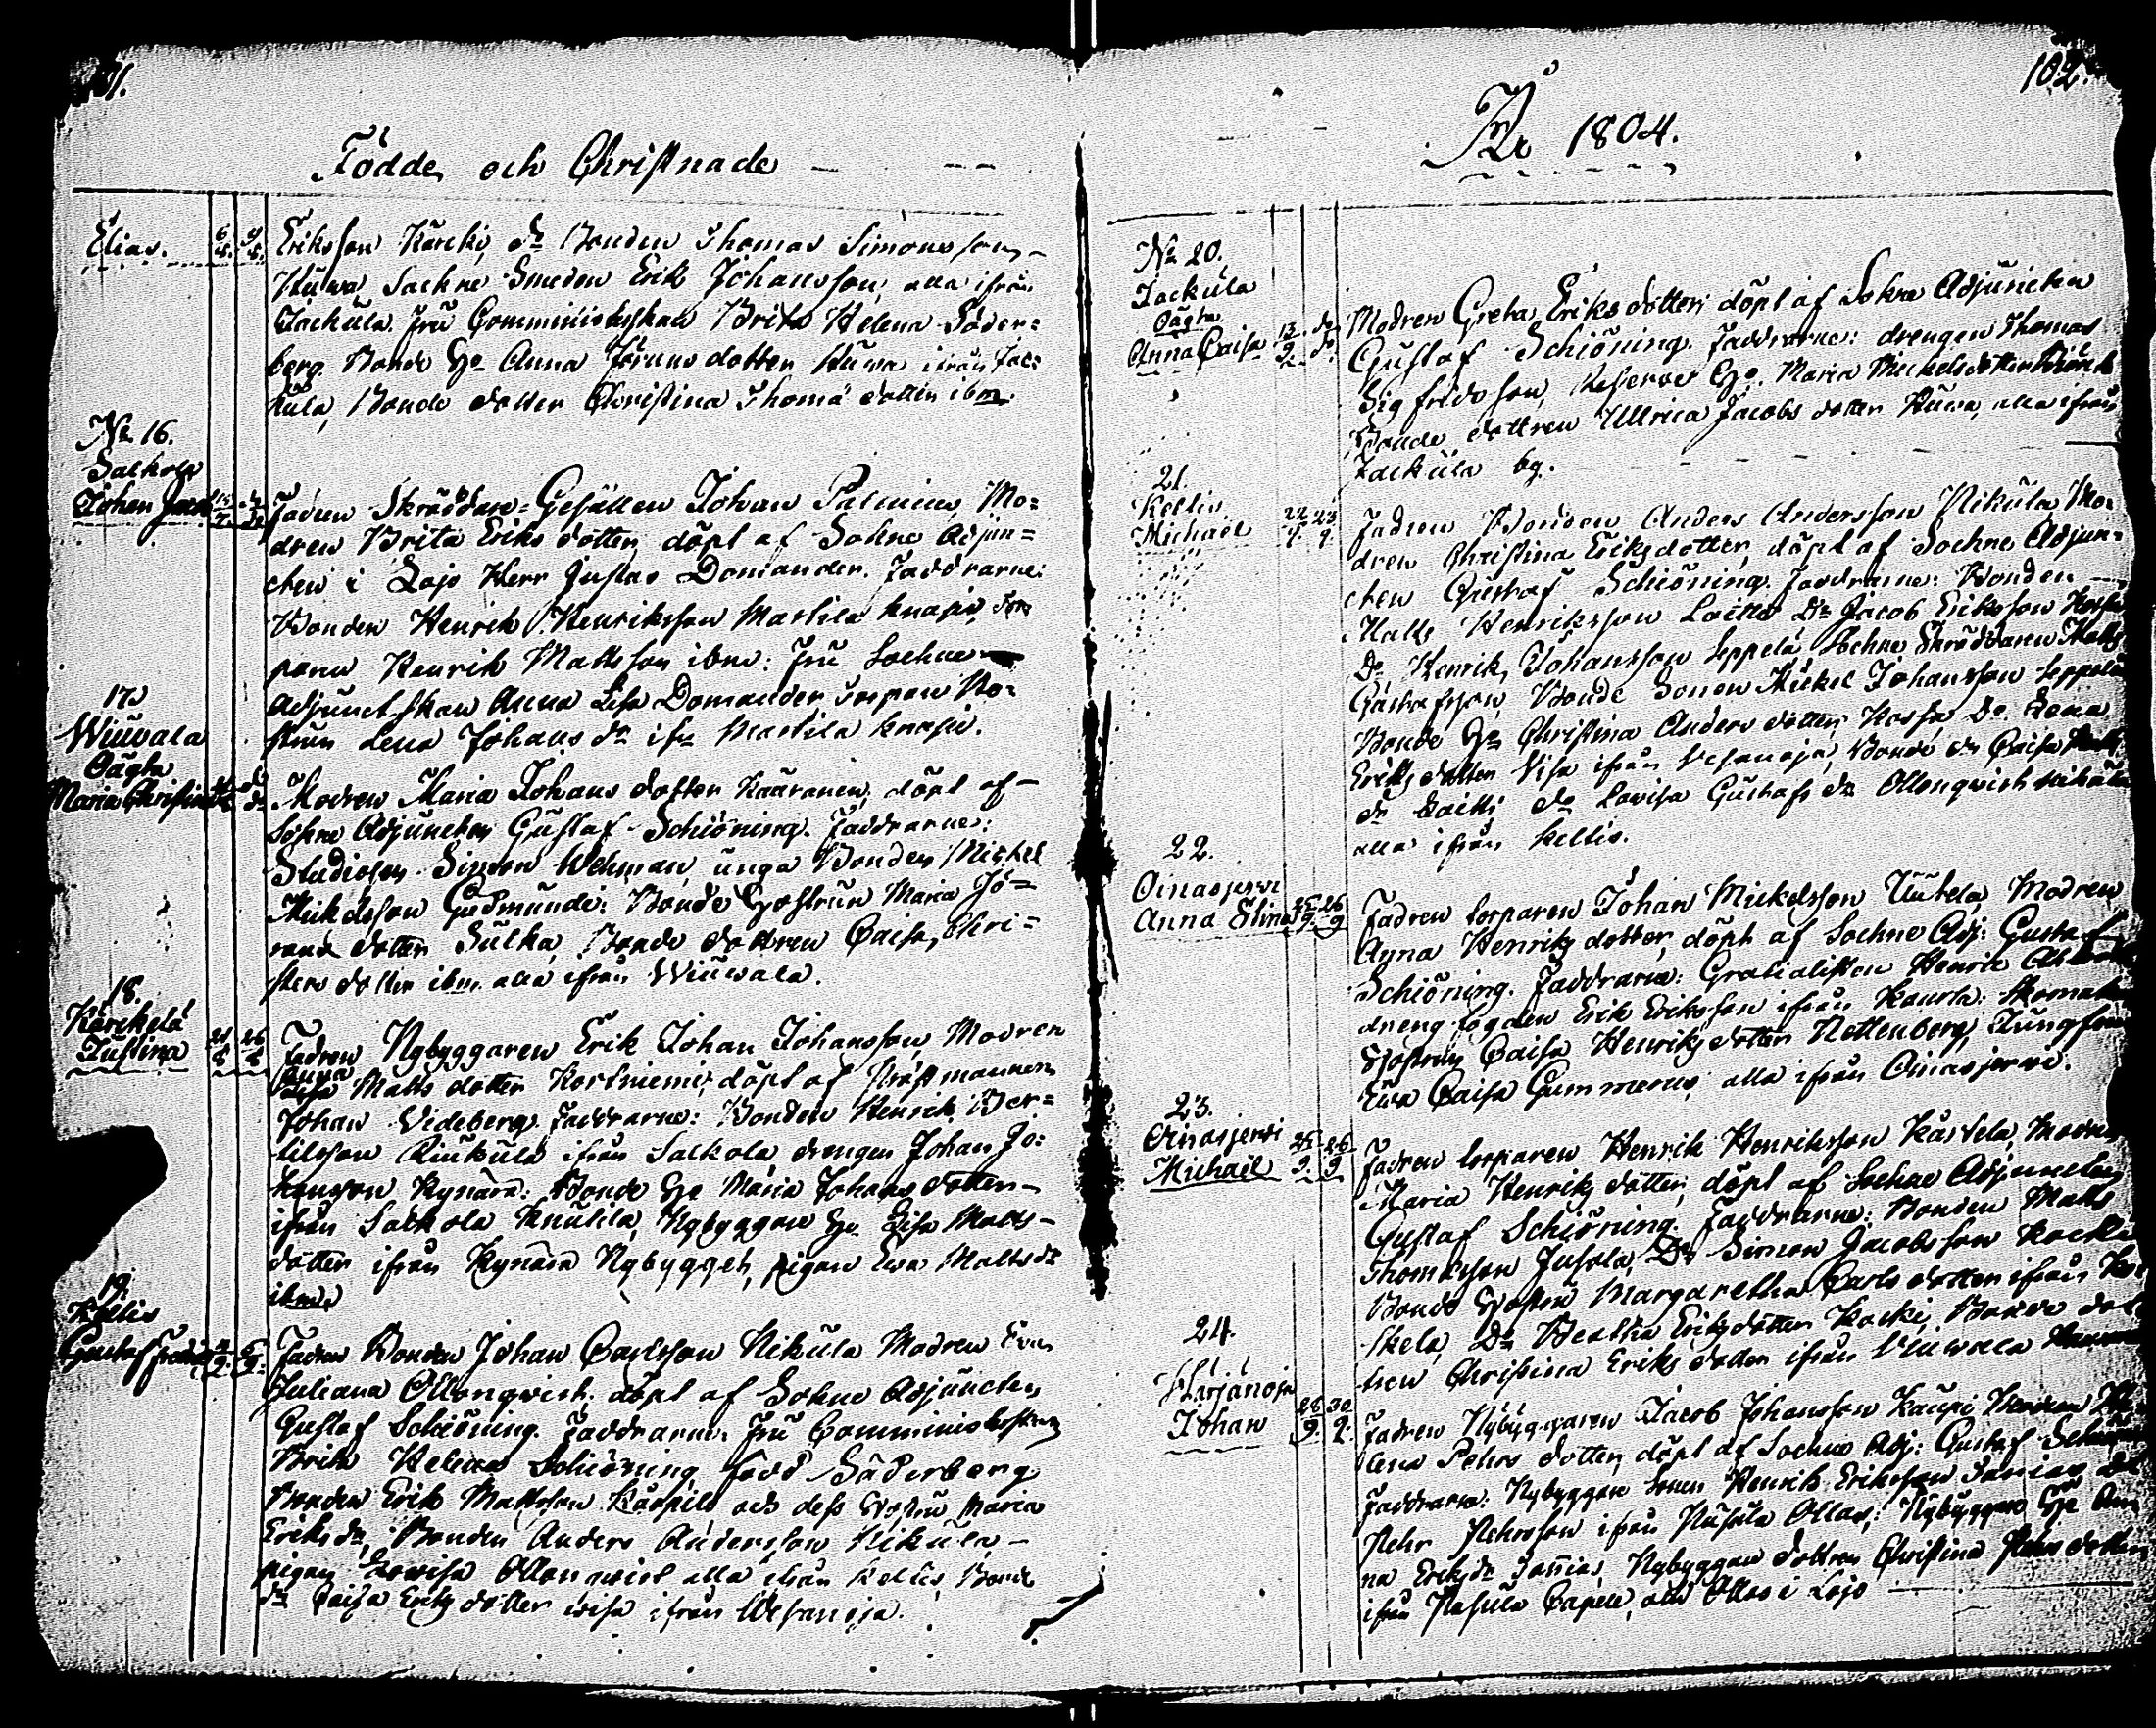 101.
Födde och Christnade
Elias. 6 9
Eriksson Kärcki, do Bonden Thomas Simonsson
Huwa Sockne Smeden Erik Johansson, alla ifrån
Jackula. Fru Comministerskan Brita Helena Söder=
berg. Bonde Ho Anna Jöruns dotter Huwa ifrån Jac=
kula, Bonde dotter Christina Thomæ dotter ibm.
No 16.
Salkola
Johan Jacob
Fadren Skräddare=Gesällen Johan Palenius, Mo=
dren Brita Eriks dotter, döpt af Sokne Adjun=
cten i Lojo Herr Gustav Domander. Faddrarne:
Bonden Henrik Henriksson Marttila Knapin,
paren Henrik Mattsson ibm: Fru Sockne
Adjunctskan Anna Lisa Domander, Torpare
strun Lena Johans dr ifr Marttila Knapin.
17.
Wiuvala
Oägta
Maria Christina
Modren Maria Johans dotter Kääranen, döpt af
Sokne Adjuncten Gustaf Schiöning. Faddrarne:
Studiosen Simon Wehman, unga Bonden Mickel
Mickelsson Gudmundi: Bonde Hostrun Maria Jö=
rans dotter Sulka, Bonde dottren Caisa Chri=
sters dotter ibm alla ifrån Wiuwala.
18.
Kärckelä
Justina 21 26
Fadren Nybyggaren Erik Johan Johansson, Modren
Anna
Lisa Matts dotter Kortniemi, döpt af Prästmannen
Johan Videberg. Faddrarne: Bonden Henrik Ber=
tilsson Riukula ifrån Salkola, drengen Johan Jo=
hansson Kynärä: Bonde Ho Maria Johans dotter
ifrån Salkola Knutila, Nybyggare Ho Lisa Matts
dotter ifrån Kynärä Nybygget, pigan Ewa Matts dr
ibm.
19.
Kellis
Gustaf Fredric 4 5
9. 9.
Fadren Bonden Johan Carlsson Nikula Modren Eva
Juliana Ollonqwist, döpt af Sokne Adjuncten
Gustaf Schiöning. Faddrarne: Fru Comministerskan
Brita Helena Schiöning född Söderberg
Bonden Erik Mattsson Kärpilä och dess Hostru Maria
Eriks dr, Bonden Anders Andersson Nikula
pigan Lowisa Ollonqwist alla ifrån Kellis, Bonde
dr Caisa Eriks dotter Wisa ifrån Wesanoja.
102.
År 1804.
No 20.
Jackula
Oägta
Anna Caisa 13 do
9. do
Modren Greta Eriks dotter, döpt af Sokne Adjuncten
Gustaf Schiöning. Faddrarne: drengen Thomas
Sigfridsson, Reserve Ho. Maria Mickels dotter
Bonde dottren Ullrica Jacobs dotter Huwa, alla ifrån
Jackula by.
21.
Kellis
Michaël 22 23
9. 9.
Fadren Bonden Anders Andersson Nikula, Mo=
dren Christina Eriks dotter, döpt af Sockne Adjun=
cten Gustaf Schiöning. Faddrarne: Bonden
Matts Henriksson Laitti Do Jacob Eriksson
Do, Henrik Johansson Seppelä, Sockne Skräddaren Matts
Gustafsson, Bonde Sonen Mickel Johansson Seppelä
Bonde Ho Christina Anders dotter, Do. Lena
Eriks dotter Wisa ifrån Wesanoja, Bonde dr Caisa
dr Laitti, do Lovisa Gustafs dr Ollonqwist Nikula
alla ifrån Kellis.
22.
Oinasjerwi
Anna Stina 25 26
9. 9
Fadren torparen Johan Mickelsson Uutela Modren
Anna Henriks dotter, döpt af Sockne Adj: Gustaf
Schiöning. Faddrarne: Gratialisten Henric
dreng fogden Erik Eriksson ifrån Haurla:
Hostrun Caisa Henriks dotter Nettenberg, Jungfrun
Ewa Caisa Gummerus, alla ifrån Oinasjerwi.
23.
Oinasjerwi
Michaël 25 26
9. 9
Fadren torparen Henrik Henriksson Kästelä, Modren
Maria Henriks dotter, döpt af Sockne Adjuncten
Gustaf Schiöning. Faddrarne: Bonden Matts
Thomasson Jusola, Do Simon Jacobsson Kocki
Bonde Hostru Margaretha Carls dotter ifrån
kelä, Do Beatha Eriks dotter Kocki, Bonde dot
tren Christina Eriks dotter ifrån Wiuwala
24.
Härjänoja
Johan 28 30
9. 9.
Fadren Nybyggaren Jacob Johansson Kaupi
lena Pehrs dotter, döpt af Sockne Adj: Gustaf Schiöning
Faddrarne: Nybyggare Sonen Henrik Eriksson
Pehr Pehrsson ifrån Pusula Ollas: Nybyggare Ho An
na Eriks dr, Nybyggare dottren Christina Pehrs dotter
ifrån Pusula Capell, och Ollas i Lojo